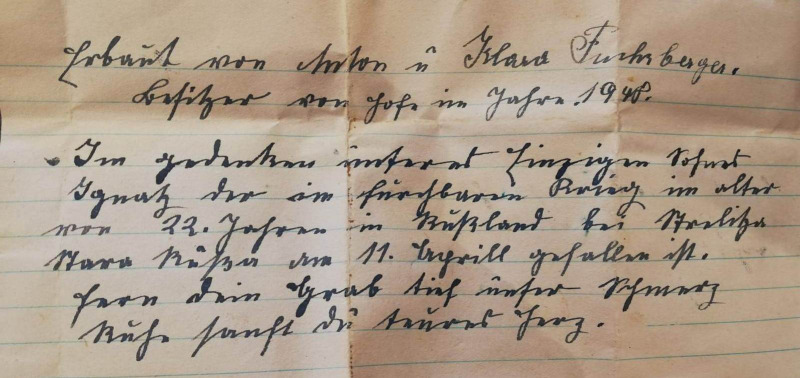 Erbaut von Anton u Klara Fuchsberger.
Besitzer von Hofe im Jahre. 1948.
Im gedenken unseres Einzigen Sohnes
Ignatz der im furchbaren Krieg im alter
von 22. Jahren in Rußland bei Strelitza
Stara Rußza am 11. Aprill gefallen ist.
Fern dein Grab tief unser Schmerz
Ruhe sanft du teures Herz.